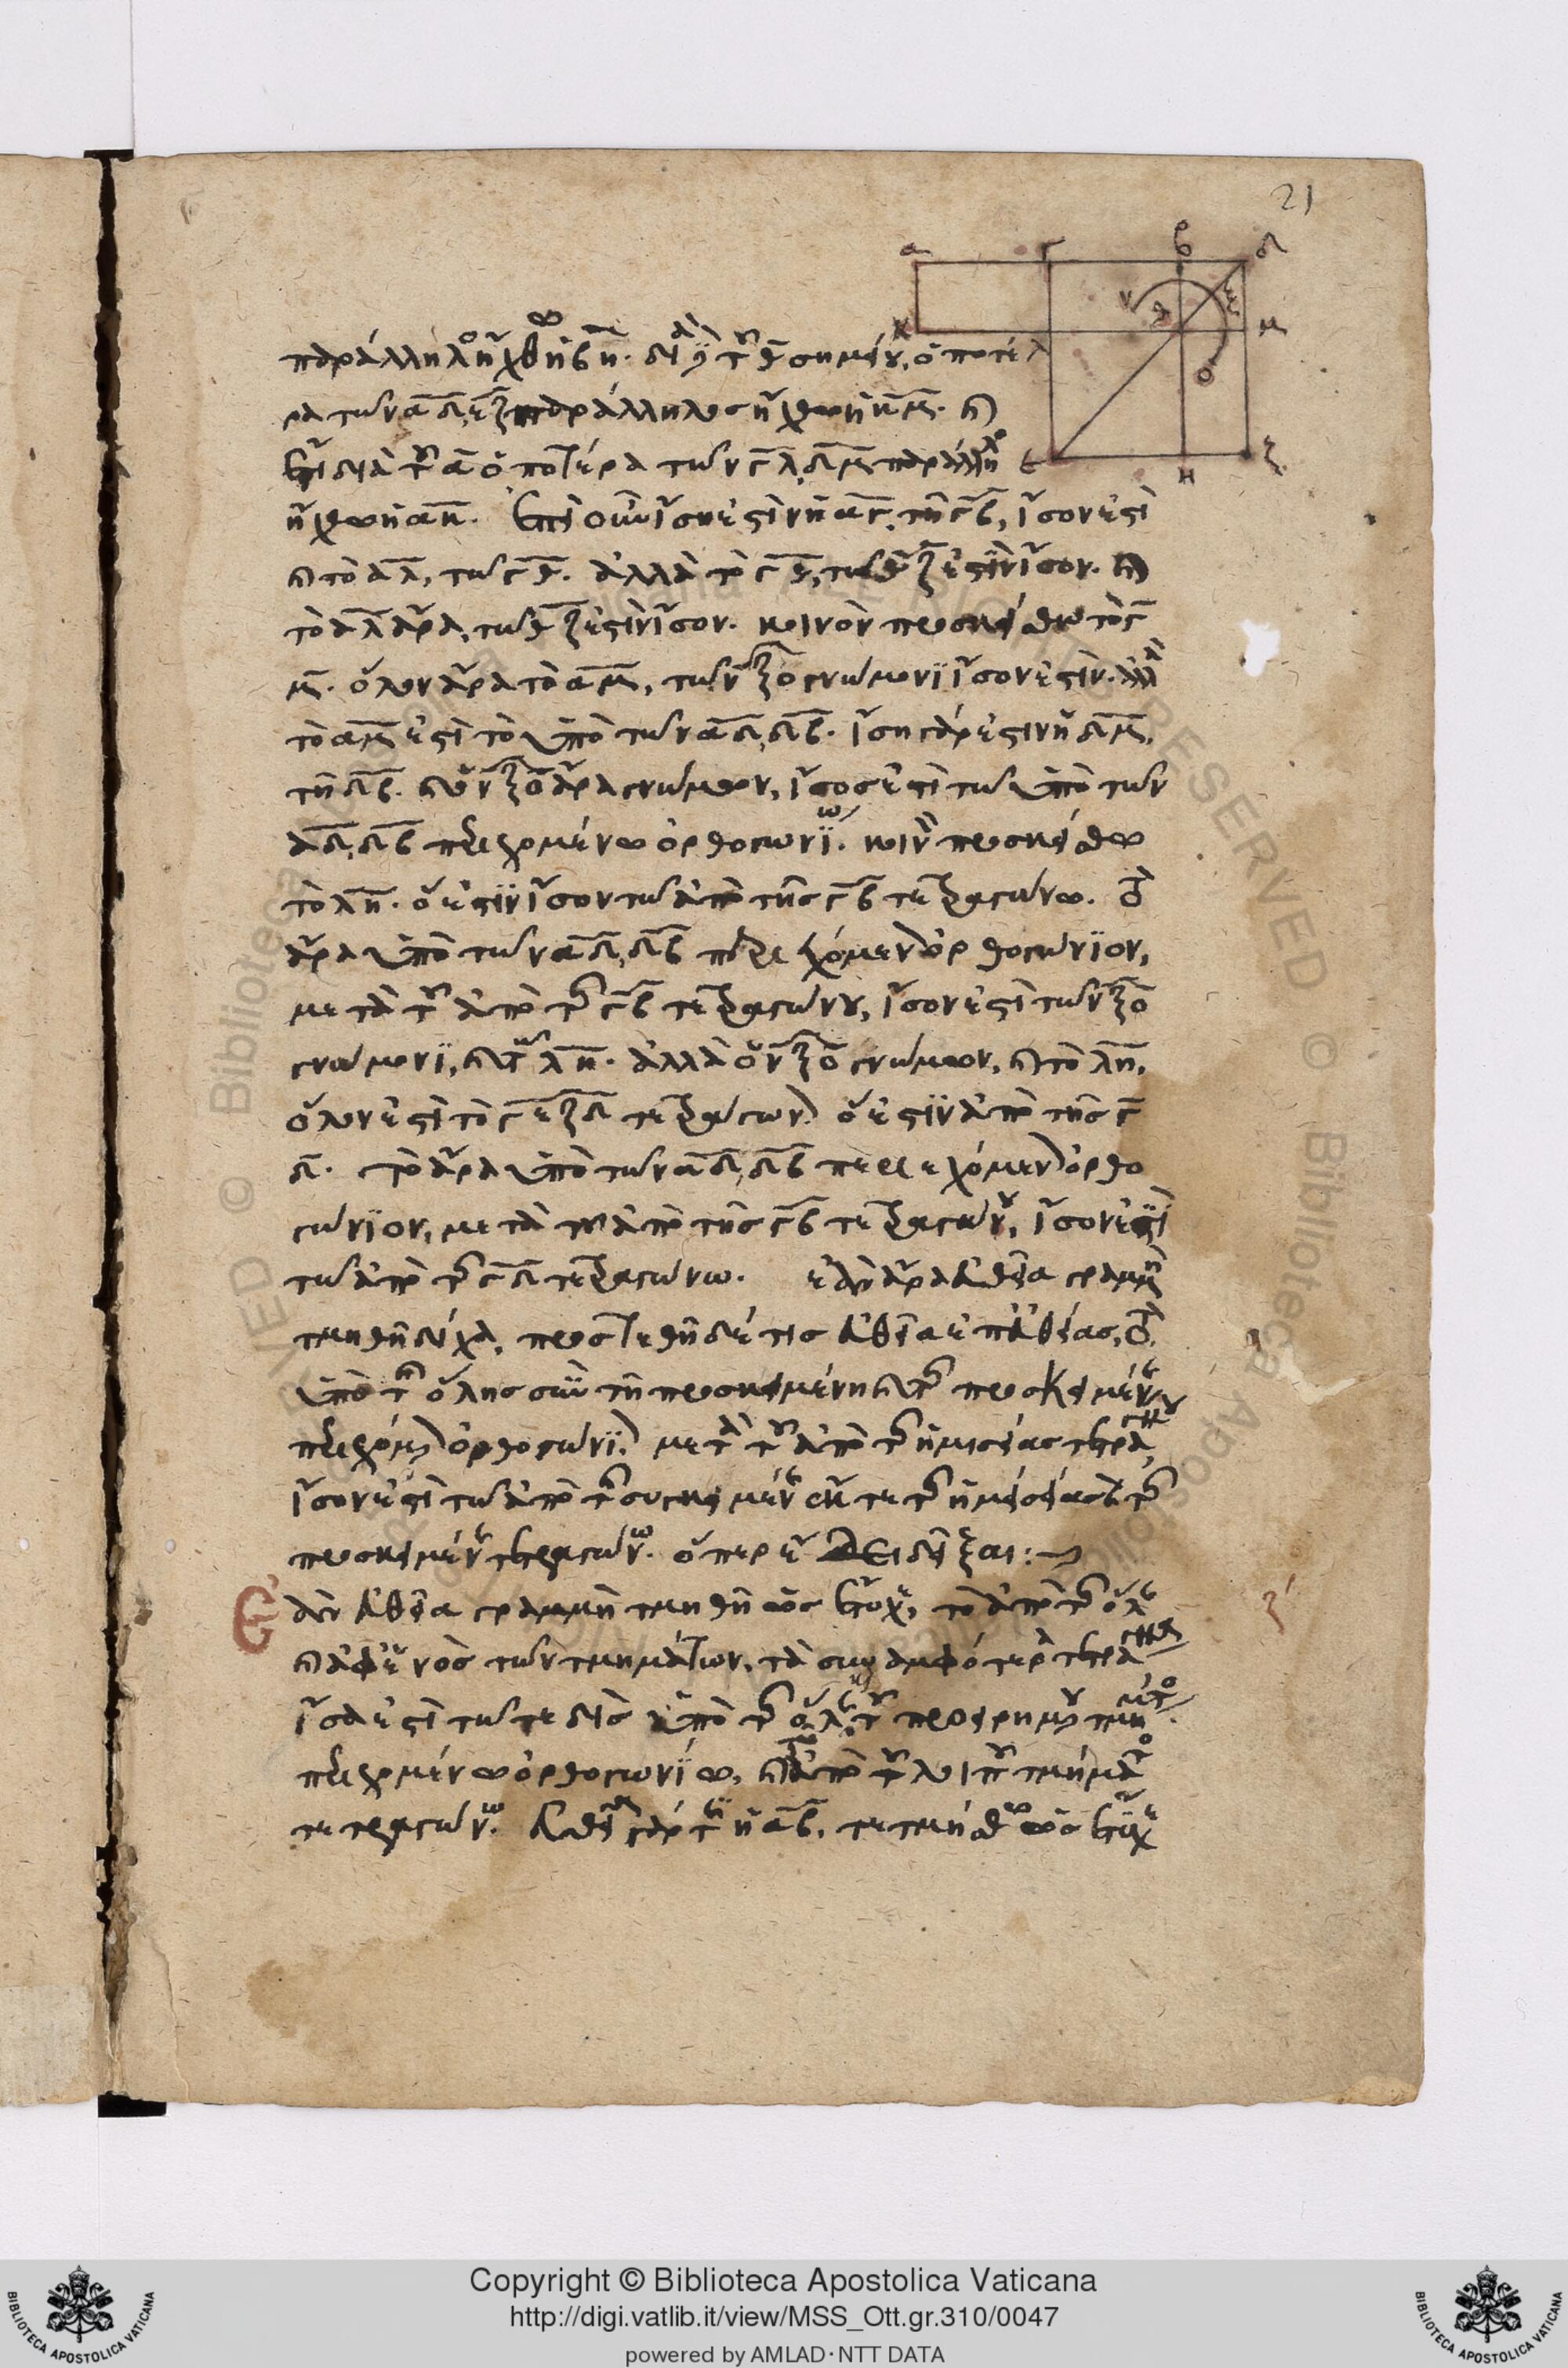 21
α γ β δ
ν λ ξ
κ μ
ο
ε η ζ
παράλληλος ἤχθω ἡ βη. διὰ δὲ τοῦ θ σημείου, ὁποτέ
ρα τῶν αδ, εζ παράλληλος ἤχθω ἡ κμ. καὶ
ἔτι διὰ τοῦ α ὁποτέρα τῶν γλ, δμ παράλληλος
ἤχθω ἡ ακ. ἐπεὶ οὖν ἴση ἐστὶν ἡ αγ, τῆ γβ, ἴσον ἐστὶ
καὶ τὸ αλ, τῶ γθ. ἀλλὰ τὸ γθ, τῶ θζ ἐστὶν ἴσον. καὶ
τὸ αλ ἄρα, τῶ θζ ἐστὶν ἴσον. κοινὸν προσκείσθω τὸ γ
μ. ὅλον ἄρα τὸ αμ, τῶ νξο γνώμονι ἴσον ἐστίν. ἀλλὰ
τὸ αμ ἐστὶ τὸ ὑπὸ τῶν αδ, δβ. ἴση γάρ ἐστιν ἡ δμ,
τῆ δβ. καὶ ὁ νξο ἄρα γνώμων, ἴσος ἐστὶ τῶ ὑπὸ τῶν
αδ, δβ περιεχομένω ὀρθογωνίω. κοινὸν προσκείσθω
τὸ λη. ὅ ἐστιν ἴσον τῶ ἀπὸ τῆς γβ τετραγώνω. τὸ
ἄρα ὑπὸ τῶν αδ, δβ περιεχόμενον ὀρθογώνιον,
μετὰ τοῦ ἀπὸ τῆς γβ τετραγώνου, ἴσον ἐστὶ τῶ νξο
γνώμονι, καὶ τῶ λη. ἀλλὰ ὁ νξο γνώμων, καὶ τὸ λη,
ὅλον ἐστὶ τὸ γεζδ τετράγωνον ὅ ἐστιν ἀπὸ τῆς γ
δ. τὸ ἄρα ὑπὸ τῶν αδ, δβ περιεχόμενον ὀρθο
γώνιον, μετὰ τοῦ ἀπὸ τῆς γβ τετραγώνου, ἴσον ἐστὶ
τῶ ἀπὸ τῆς γδ τετραγώνω. ἐὰν ἄρα εὐθεῖα γραμμὴ
τμηθῆ δίχα, προστεθῆ δέ τις εὐθεῖα ἐπ' εὐθείας, τὸ
ὑπὸ τῆς ὅλης σὺν τῆ προσκειμένη καὶ τῆς προσκειμένης
περιεχόμενον ὀρθογώνιον μετὰ τοῦ ἀπὸ τῆς ἡμισείας τετραγώνου,
ἴσον ἐστὶ τῶ ἀπὸ τῆς συγκειμένης ἔκ τε τῆς ἡμισείας καὶ τῆς
προσκειμένης τετραγώνω. ὅπερ ἔδει δεῖξαι:
Ἐὰν εὐθεῖα γραμμὴ τμηθῆ ὡς ἔτυχε, τὸ ἀπὸ τῆς ὅλης ζ'
καὶ ἀφ' ἑνὸς τῶν τμημάτων, τὰ συναμφότερα τετράγωνα
ἴσα ἐστὶ τῶ τε δὶς ὑπὸ τῆς ὅλης καὶ τοῦ προειρημένου τμήματος
περιεχομένω ὀρθογωνίω, καὶ τῶ ἀπὸ τοῦ λοιποῦ τμήματος
τετραγώνω. εὐθεῖα γάρ τις ἡ αβ, τετμήσθω ὡς ἔτυχε
Copyright © Biblioteca Apostolica Vaticana
http://digi.vatlib.it/view/MSS_Ott.gr.310/0047
powered by AMLAD·NTT DATA